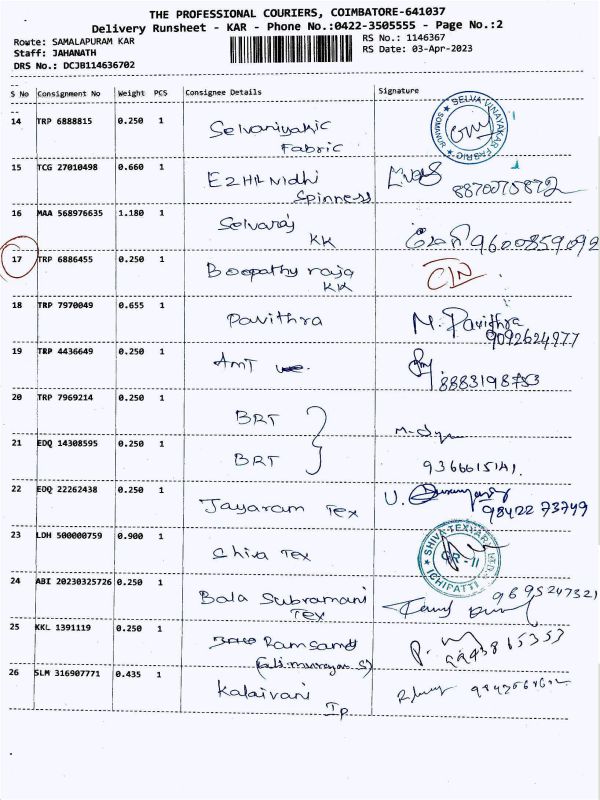 THE PROFESSIONAL COURIERS, COIMBATORE-641037
Delivery Runsheet - KAR - Phone No.:0422-3505555 - Page No.:2
Route: SAMALAPURAM KAR RS No.: 1146367
Staff: JAHANATH RS Date: 03-Apr-2023
DRS No.: DCJB114636702
S No Consignment No Weight PCS Consignee Details Signature
14 TRP 6888815 0.250 1 Fabric
SELVA VINAYAKAR FABRIC SOMANUR
15 TCG 27010498 0.660 1 Ezhil Nidhi
Spinness
16 MAA 568976635 1.180 1 Selvaraj
KK 9600859092
17 TRP 6886455 0.250 1 Boopathy raja
KK
18 TRP 7970049 0.655 1 Pavithra M. Pavithra
9092624977
19 TRP 4436649 0.250 1 AMT
8883198753
20 TRP 7969214 0.250 1 BRT
21 EDQ 14308595 0.250 1 BRT 9366615141.
22 EDQ 22262438 0.250 1 Jayaram Tex U.
98422 73749
23 LDH 500000759 0.900 1 Shiva Tex
24 ABI 20230325726 0.250 1 Bala Subramani
Tex 9695247321
25 KKL 1391119 0.250 1
9443865353
26 SLM 316907771 0.435 1 Kalaivani